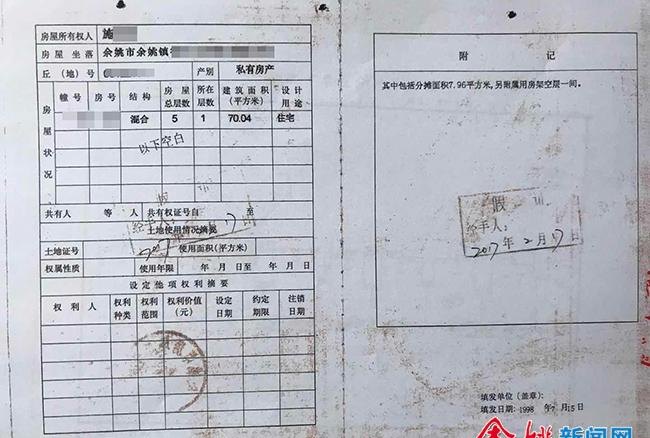 房屋所有权人 施
房屋坐落 余姚市余姚镇
丘（地）号 产别 私有房产
房屋状况
幢号 房号 结构 房屋总层数 所在层数 建筑面积（平方米） 设计用途
混合 5 1 70.04 住宅
以下空白
共有人 等 人 共有权证号自 至
土地使用情况摘要
土地证号 使用面积（平方米）
权属性质 使用年限 年 月 日至 年 月 日
设定他项权利摘要
权利人 权利种类 权利范围 权利价值（元） 设定日期 约定期限 注销日期
假
经手人：
2017
附 记
其中包括分摊面积7.96平方米，另附属用房架空层一间。
假
经手人：
2017年2月17日
填发单位（盖章）：
填发日期：1998 年7月15日
余姚新闻网